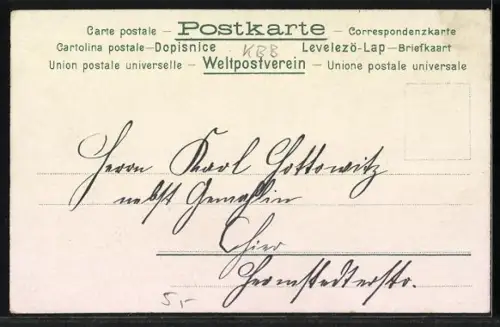 Carte postale – Postkarte – Correspondenzkarte
Cartolina postale–Dopisnice KBB Levelező-Lap–Briefkaart
Union postale universelle – Weltpostverein – Unione postale universale
Herrn Karl Gottowitz
nebst Gemahlin
Hier
Hermstedterstr.
5,-